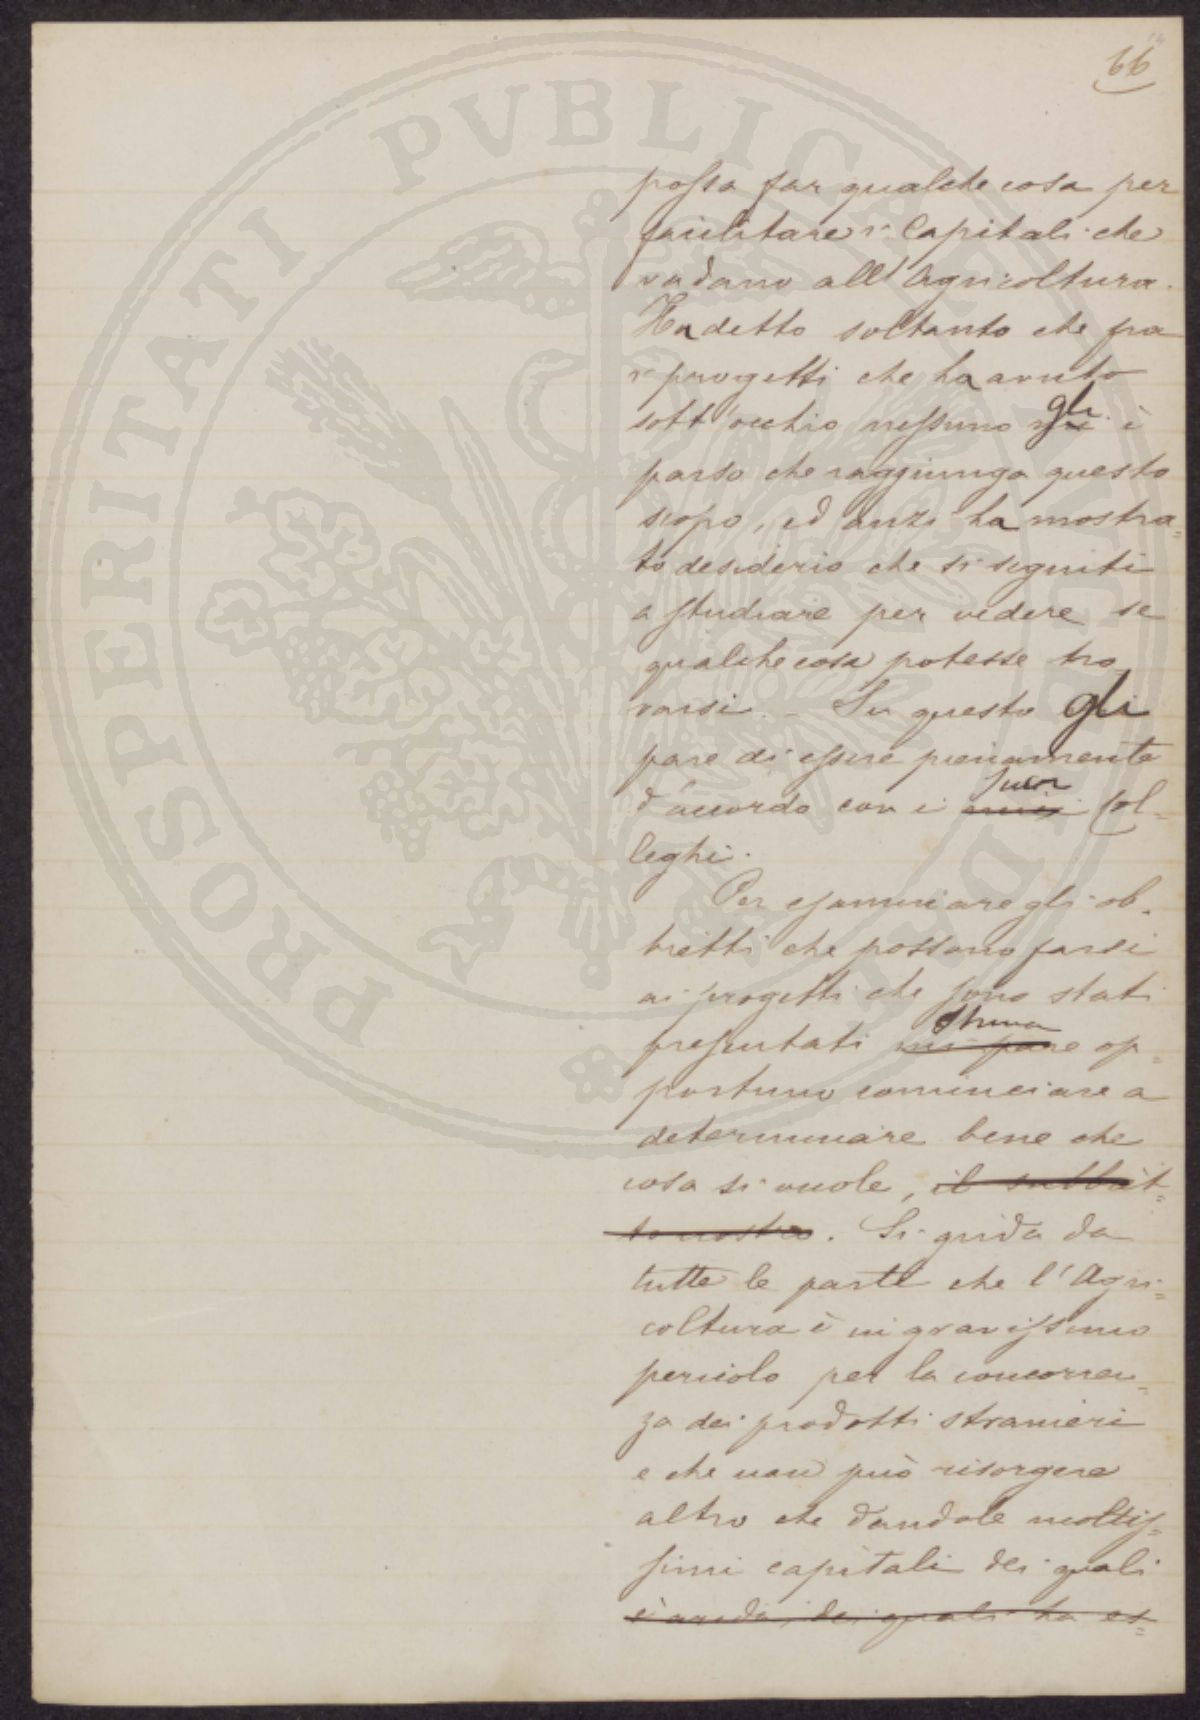 66
possa far qualche cosa per
facilitare i Capitali che
vadano all'Agricoltura.
Ha detto soltanto che fra
i progetti che ha avuto
sott'occhio nessuno gli è
parso che raggiunga questo
scopo, ed anzi ha mostra=
to desiderio che si seguiti
a studiare per vedere se
qualche cosa potesse tro
varsi. - Su questo gli
pare di essere pienamente
d'accordo con i miei suoi Col=
leghi.
Per esaminare gli ob.
bietti che possono farsi
ai progetti che sono stati
presentati mi pare stima op=
portuno cominciare a
determinare bene che
cosa si vuole, il
. Si grida da
tutte le parti che l'Agri=
coltura è in gravissimo
pericolo per la concorren=
za dei prodotti stranieri
e che non può risorgere
altro che dandole moltis=
simi capitali dei quali
è arida, dei quali ha es=
PROSPERITATI PVBLICAE